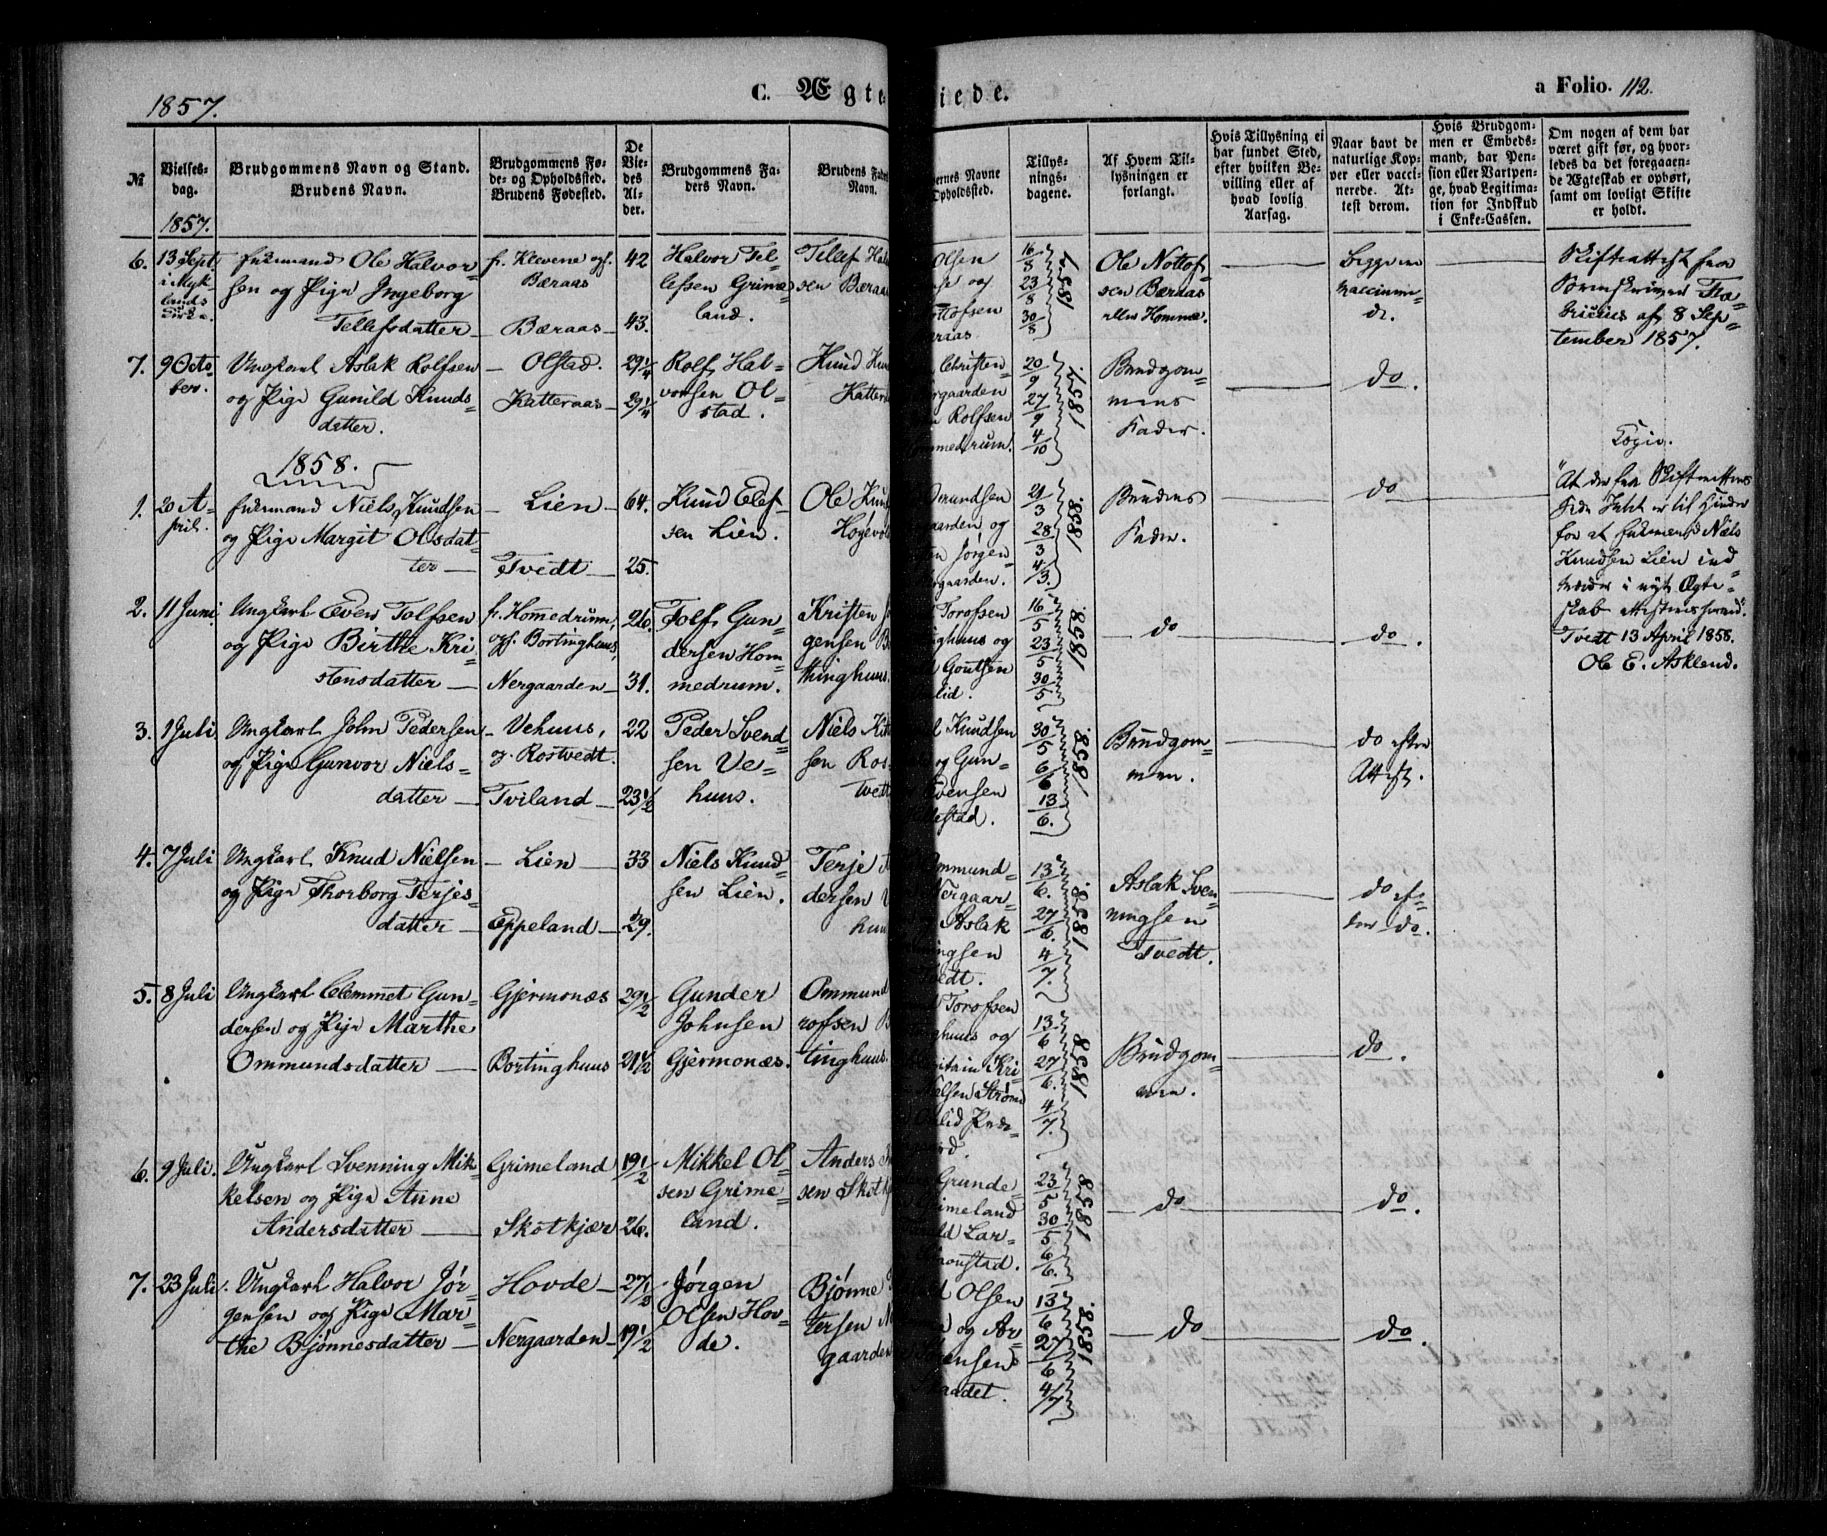 1857.
C. Ægte
iede.
a Folio. 112.
№
Vielses-
dag.
Brudgommens Navn og Stand.
Brudens Navn.
Brudgommens Fø-
de- og Opholdssted.
Brudens Fødested.
De
Vie-
des
Al-
der.
Brudgommens Fa-
ders Navn.
Brudens Fad
Navn.
ernes Navne
Opholdssted.
Tillys-
nings-
dagene.
Af Hvem Til-
lysningen er
forlangt.
Hvis Tillysning ei
har fundet Sted,
efter hvilken Be-
villing eller af
hvad lovlig
Aarsag.
Naar havt de
naturlige Kop-
per eller vacci-
nerede. At-
test derom.
Hvis Brudgom-
men er Embeds-
mand, har Pen-
sion eller Vartpen-
ge, hvad Legitima-
tion for Indskud
i Enke-Cassen.
Om nogen af dem har
været gift før, og hvor-
ledes da det foregaaen-
de Ægteskab er ophørt,
samt om lovligt Skifte
er holdt.
1857.
6. 13 Sept.
i Myk-
lands
Kirke.
Enkemand Ole Halvor-
sen og Pige Ingeborg
Tellefsdatter
fr. Klevene og f.
Bæraas
Bæraas
42
43.
Halvor Tel-
lefsen Grime-
land.
Tellef Hal
sen Bæraas
Olsen
og
ottofsen
eraas
16/8
23/8
30/8
1857
Ole Nottof-
sen Bæraas
eller Homme.
Begge ere
vaccinere-
de.
Skifteattest fra
Sorenskriver Fa-
bricius af 8 Sep-
tember 1857.
7. 9 Octo-
ber.
Ungkarl Aslak Rolfsen
og Pige Gunild Knuds-
datter.
Olstad.
Katteraas
29 1/4
29 1/4
Rolf Hal-
vorsen Ol-
stad.
Knud Knu
Kattera
Christen-
rgaarden
Rolfsen
ommedrum.
20/9
27/9
4/10
1857.
Brudgom-
mens
Fader.
do.
1858.
1. 20 A-
pril.
Enkemand Niels Knudsen
og Pige Margit Olsdat-
ter
Lien
Tvedt
64.
25.
Knud Elef-
sen Lien.
Ole Knu
Hogevol
Omundsen
aarden og
Jørgen-
rgaarden.
21/3
28/3
4/3.
1858.
Brudens
Fader.
do
Copie.
"At der fra Skifterettens
Side Intet er til Hinder
for at Enkemand Niels
Knudsen Lien ind-
træder i nyt Ægte-
skab attesteres herved."
Tvedt 13 April 1858.
Ole E. Askland.
2. 11 Juni
Ungkarl Even Tolfsen
og Pige Birthe Kri-
stensdatter
fr. Hommedrum,
og f. Bortinghuus,
Nergaarden
26.
31.
Tolf Gun-
dersen Hom-
medrum.
Kristen J
gensen B
thinghuus.
Torofsen
ghuus og
Goutsen
lid.
16/5
23/5
30/5
1858.
do
do.
3. 1 Juli
Ungkarl John Pedersen
og Pige Gunvor Niels-
datter
Vehuus,
og Rostvedt.
Tviland
22
23 1/2
Peder Svend-
sen Ve-
huus.
Niels Kit
sen Ros-
tvedt
Knudsen
og Gun-
Evensen
estad.
30/5
6/6
13/6.
1858.
Brudgom-
men.
do efter
Attest.
4. 7 Juli
Ungkarl Knud Nielsen
og Pige Thorborg Terjes-
datter
Lien
Eppeland
33
29.
Niels Knud-
sen Lien.
Terje
dersen V
huu
Ommund-
Nergaar-
Aslak
ingsen
Tvedt.
13/6.
27/6.
4/7.
1858.
Aslak Sven-
ningsen
Tvedt.
do ef-
ter do.
5. 8 Juli
Ungkarl Clemmet Gun-
dersen og Pige Marthe
Ommundsdatter
Gjermonæs
Bortinghuus
29 1/2
21 1/2
Gunder
Johnsen
Gjermonæs.
Ommund
rofsen B
tinghuus.
Torofsen
ghuus og
Kri-
Strøm
13/6
27/6.
4/7.
1858.
Brudgom-
men.
do.
6. 9 Juli.
Ungkarl Svenning Mik-
kelsen og Pige Anne
Andersdatter
Grimeland
Skotkjær
19 1/2
26.
Mikkel Ol-
sen Grime-
land.
Anders
sen Skotkj
Grunde-
rimeland
ld Lar-
aonstad.
23/5
30/5
6/6.
1858.
do
do.
7. 23 Juli.
Ungkarl Halvor Jør-
gensen og Pige Mar-
the Bjønnesdatter
Hovde
Nergaarden
27 1/2
19 1/2
Jørgen
Olsen Hov-
de.
Bjønne
tersen N
gaarden
Olsen
og Ar-
ensen
aadet.
13/6
27/6
4/7
1858.
do
do.